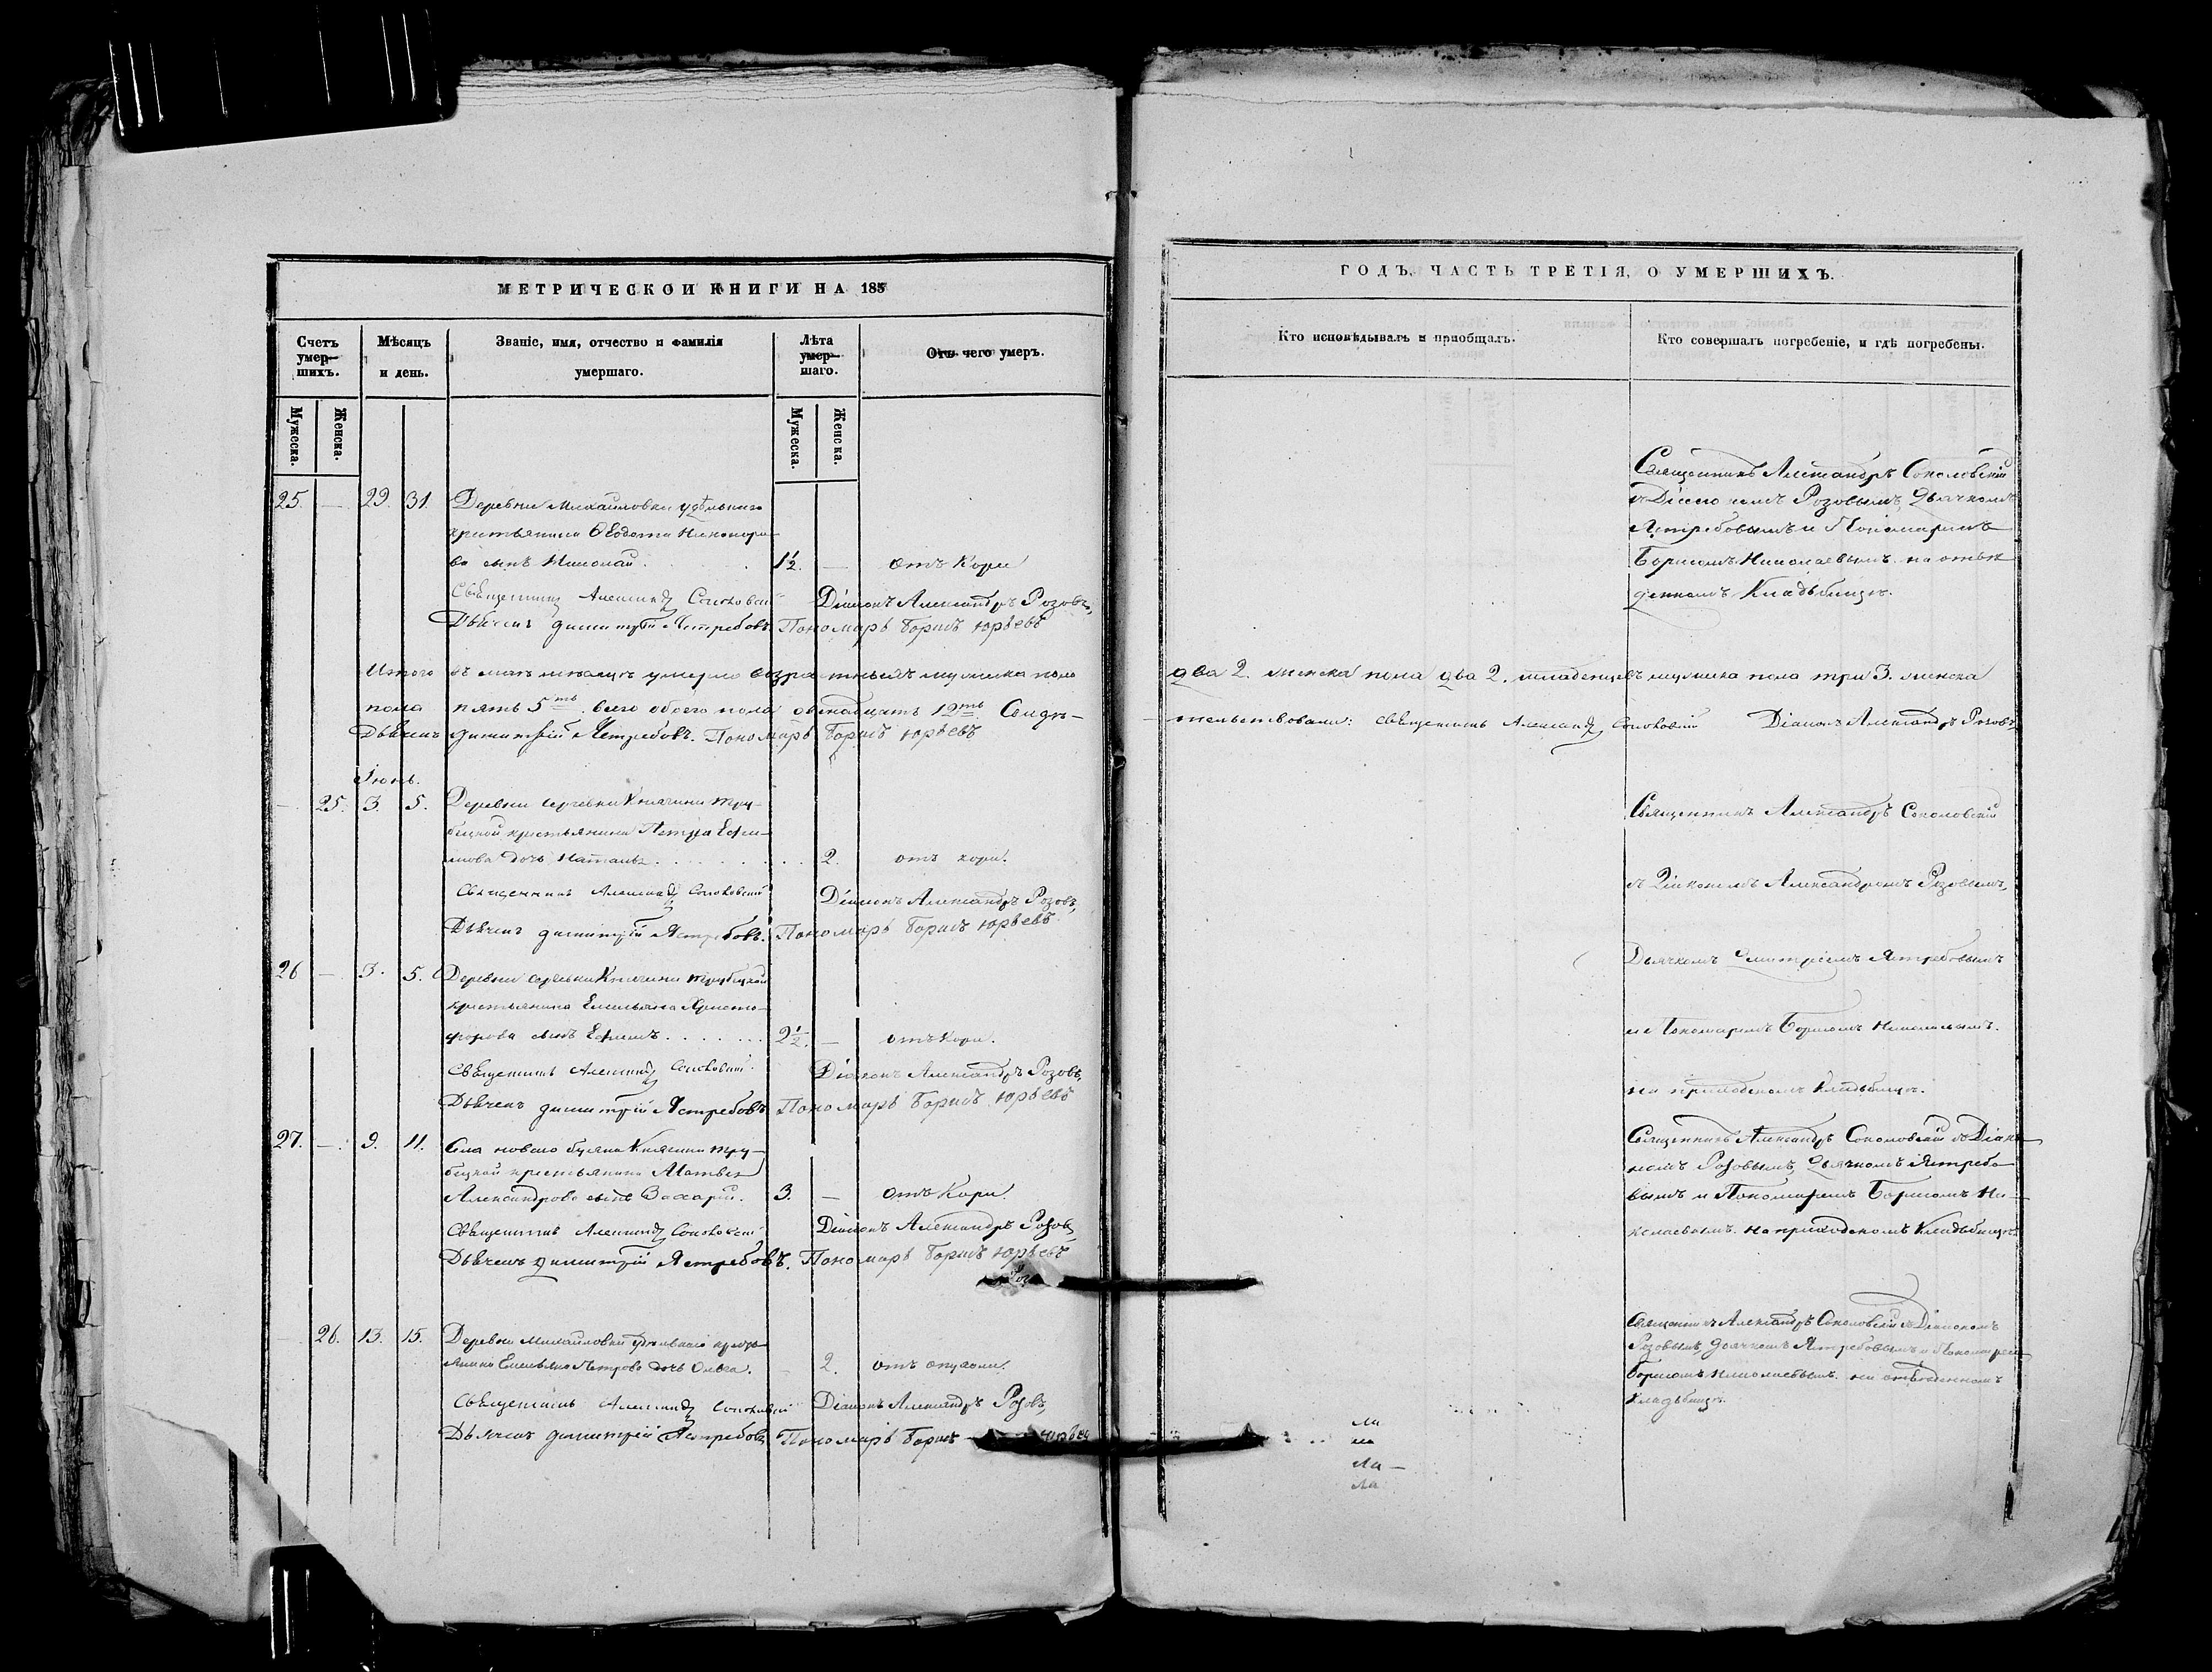 МЕТРИЧЕСКОЙ КНИГИ НА 185
Счетъ умер-шихъ.
Мѣсяцъ и день.
Званіе, имя, отчество и фамилія умершаго.
Лѣта умер-шаго.
Отъ чего умеръ.
Мужеска.
Женска.
Мужеска.
Женска.
25 — 29. 31. Деревни Михайловки удѣльнаго
крестьянина Ѳеодота Никоноро-
ва сынъ Николай. 1½. — отъ Кори
Священникъ Александръ Соколовскій Діаконъ Александръ Розовъ,
Дьячекъ Димитрій Ястребовъ. Пономарь Борисъ Юрьевъ
Итого въ маѣ мѣсяцѣ умерло возрастныхъ мужеска пола
пола пять 5ть. всего обоего пола двенадцать 12ть Свидѣ-
Дьячекъ Димитрій Ястребовъ. Пономарь Борисъ Юрьевъ
Іюнь.
— 25. 3. 5. Деревни Сергевки Княгини Тру-
бецкой крестьянина Петра Ефи-
мова дочь Наталья . . . . . . . . . 2. отъ кори.
Священникъ Александръ Соколовскій Діаконъ Александръ Розовъ,
Дьячекъ Димитрій Ястребовъ. Пономарь Борисъ Юрьевъ
26 — 3. 5. Деревни Сергевки Княгини Трубецкой
крестьянина Емельяна Христо-
форова сынъ Ефимъ . . . . . . . 2½. — отъ Кори.
Священникъ Александръ Соколовскій. Діаконъ Александръ Розовъ,
Дьячекъ Димитрій Ястребовъ Пономарь Борисъ Юрьевъ
27. — 9. 11. Села новаго Буяна Княгини Тру-
бецкой крестьянина Матвея
Александрова сынъ Захарій. 3. — отъ Кори.
Священникъ Александръ Соколовскій Діаконъ Александръ Розовъ,
Дьячекъ Димитрій Ястребовъ. Пономарь Борисъ Юрьевъ
— 26. 13. 15. Деревни Михайловки удѣльнаго кресть-
янина Емельяна Петрова дочь Ольга. — 2. отъ опухоли.
Священникъ Александръ Соколовскій Діаконъ Александръ Розовъ,
Дьячекъ Димитрій Ястребовъ Пономарь Борисъ Юрьевъ
ГОДЪ, ЧАСТЬ ТРЕТІЯ, О УМЕРШИХЪ.
Кто исповѣдывалъ и пріобщалъ.
Кто совершалъ погребеніе, и гдѣ погребены.
Священникъ Александръ Соколовскій
съ Діакономъ Розовымъ, Дьячкомъ
Ястребовымъ и Пономаремъ
Борисомъ Николаевымъ на отве-
денномъ Кладьбищѣ.
два 2. женска пола два 2. младенцевъ мужеска пола три 3. женска
тельствовали: священникъ Александръ Соколовскій Діаконъ Александръ Розовъ,
Священникъ Александръ Соколовскій
съ Діакономъ Александромъ Розовымъ,
Дьячкомъ Димитріемъ Ястребовымъ
и Пономаремъ Борисомъ Николаевымъ.
на приходскомъ Кладьбищѣ.
Священникъ Александръ Соколовскій съ Діако-
номъ Розовымъ, Дьячкомъ Ястребо-
вымъ и Пономаремъ Борисомъ Ни-
колаевымъ. на приходскомъ Кладьбищѣ.
Священникъ Александръ Соколовскій съ Діакономъ
Розовымъ, Дьячкомъ Ястребовымъ и Пономаремъ
Борисомъ Николаевымъ. на отведенномъ
Кладьбищѣ.